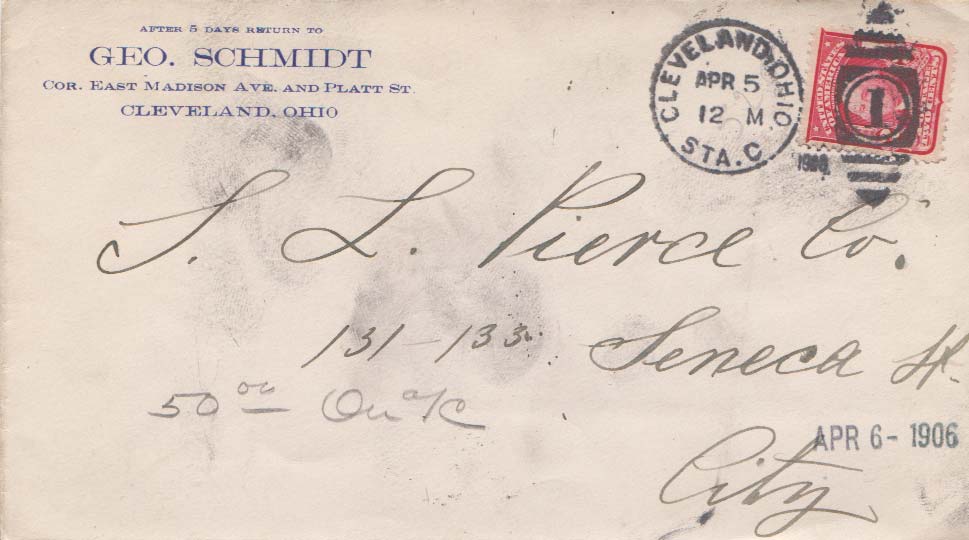 AFTER 5 DAYS RETURN TO
GEO. SCHMIDT
COR. EAST MADISON AVE. AND PLATT ST.
CLEVELAND, OHIO
CLEVELAND, OHIO
APR 5
12 M
STA. C
1906
1
S. L. Pierce Co.
131-133 Seneca St.
50 00 On a/c
APR 6- 1906
City